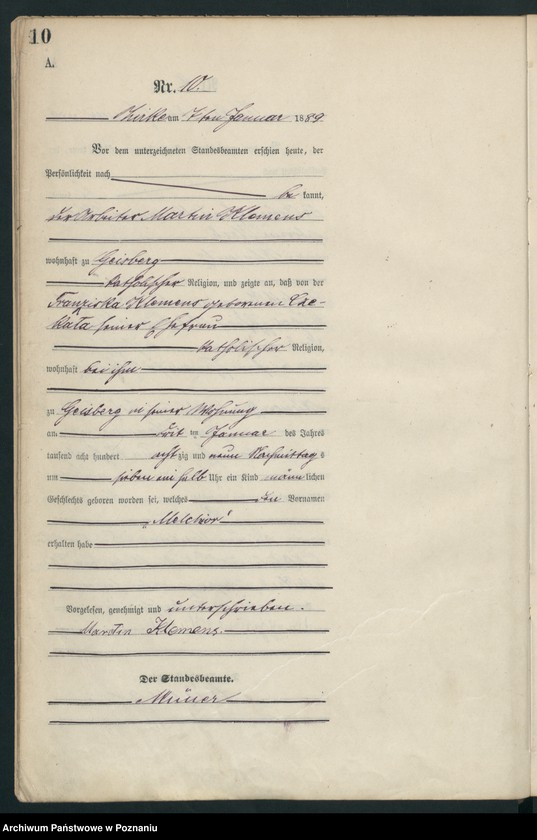 10
A.
Nr. 10.
Zirke am 7ten Januar 1889
Vor dem unterzeichneten Standesbeamten erschien heute, der
Persönlichkeit nach
be kannt,
der Arbeiter Martin Klemens
wohnhaft zu Geisberg
katholischer Religion, und zeigte an, daß von der
Franziska Klemens geborenen
seiner Ehefrau
katholischer Religion,
wohnhaft bei ihm
zu Geisberg in seiner Wohnung
am im Januar des Jahres
tausend acht hundert achtzig und neun Nachmittags
um sieben ein halb Uhr ein Kind männlichen
Geschlechts geboren worden sei, welches den Vornamen
„Melchior"
erhalten habe
Vorgelesen, genehmigt und unterschrieben.
Martin Klemens.
Der Standesbeamte.
Archiwum Państwowe w Poznaniu